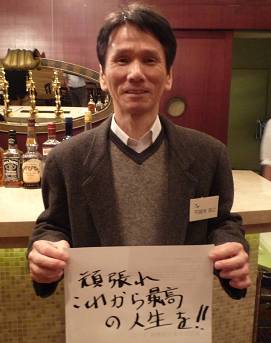 頑張れ
これから最高
の人生を!!